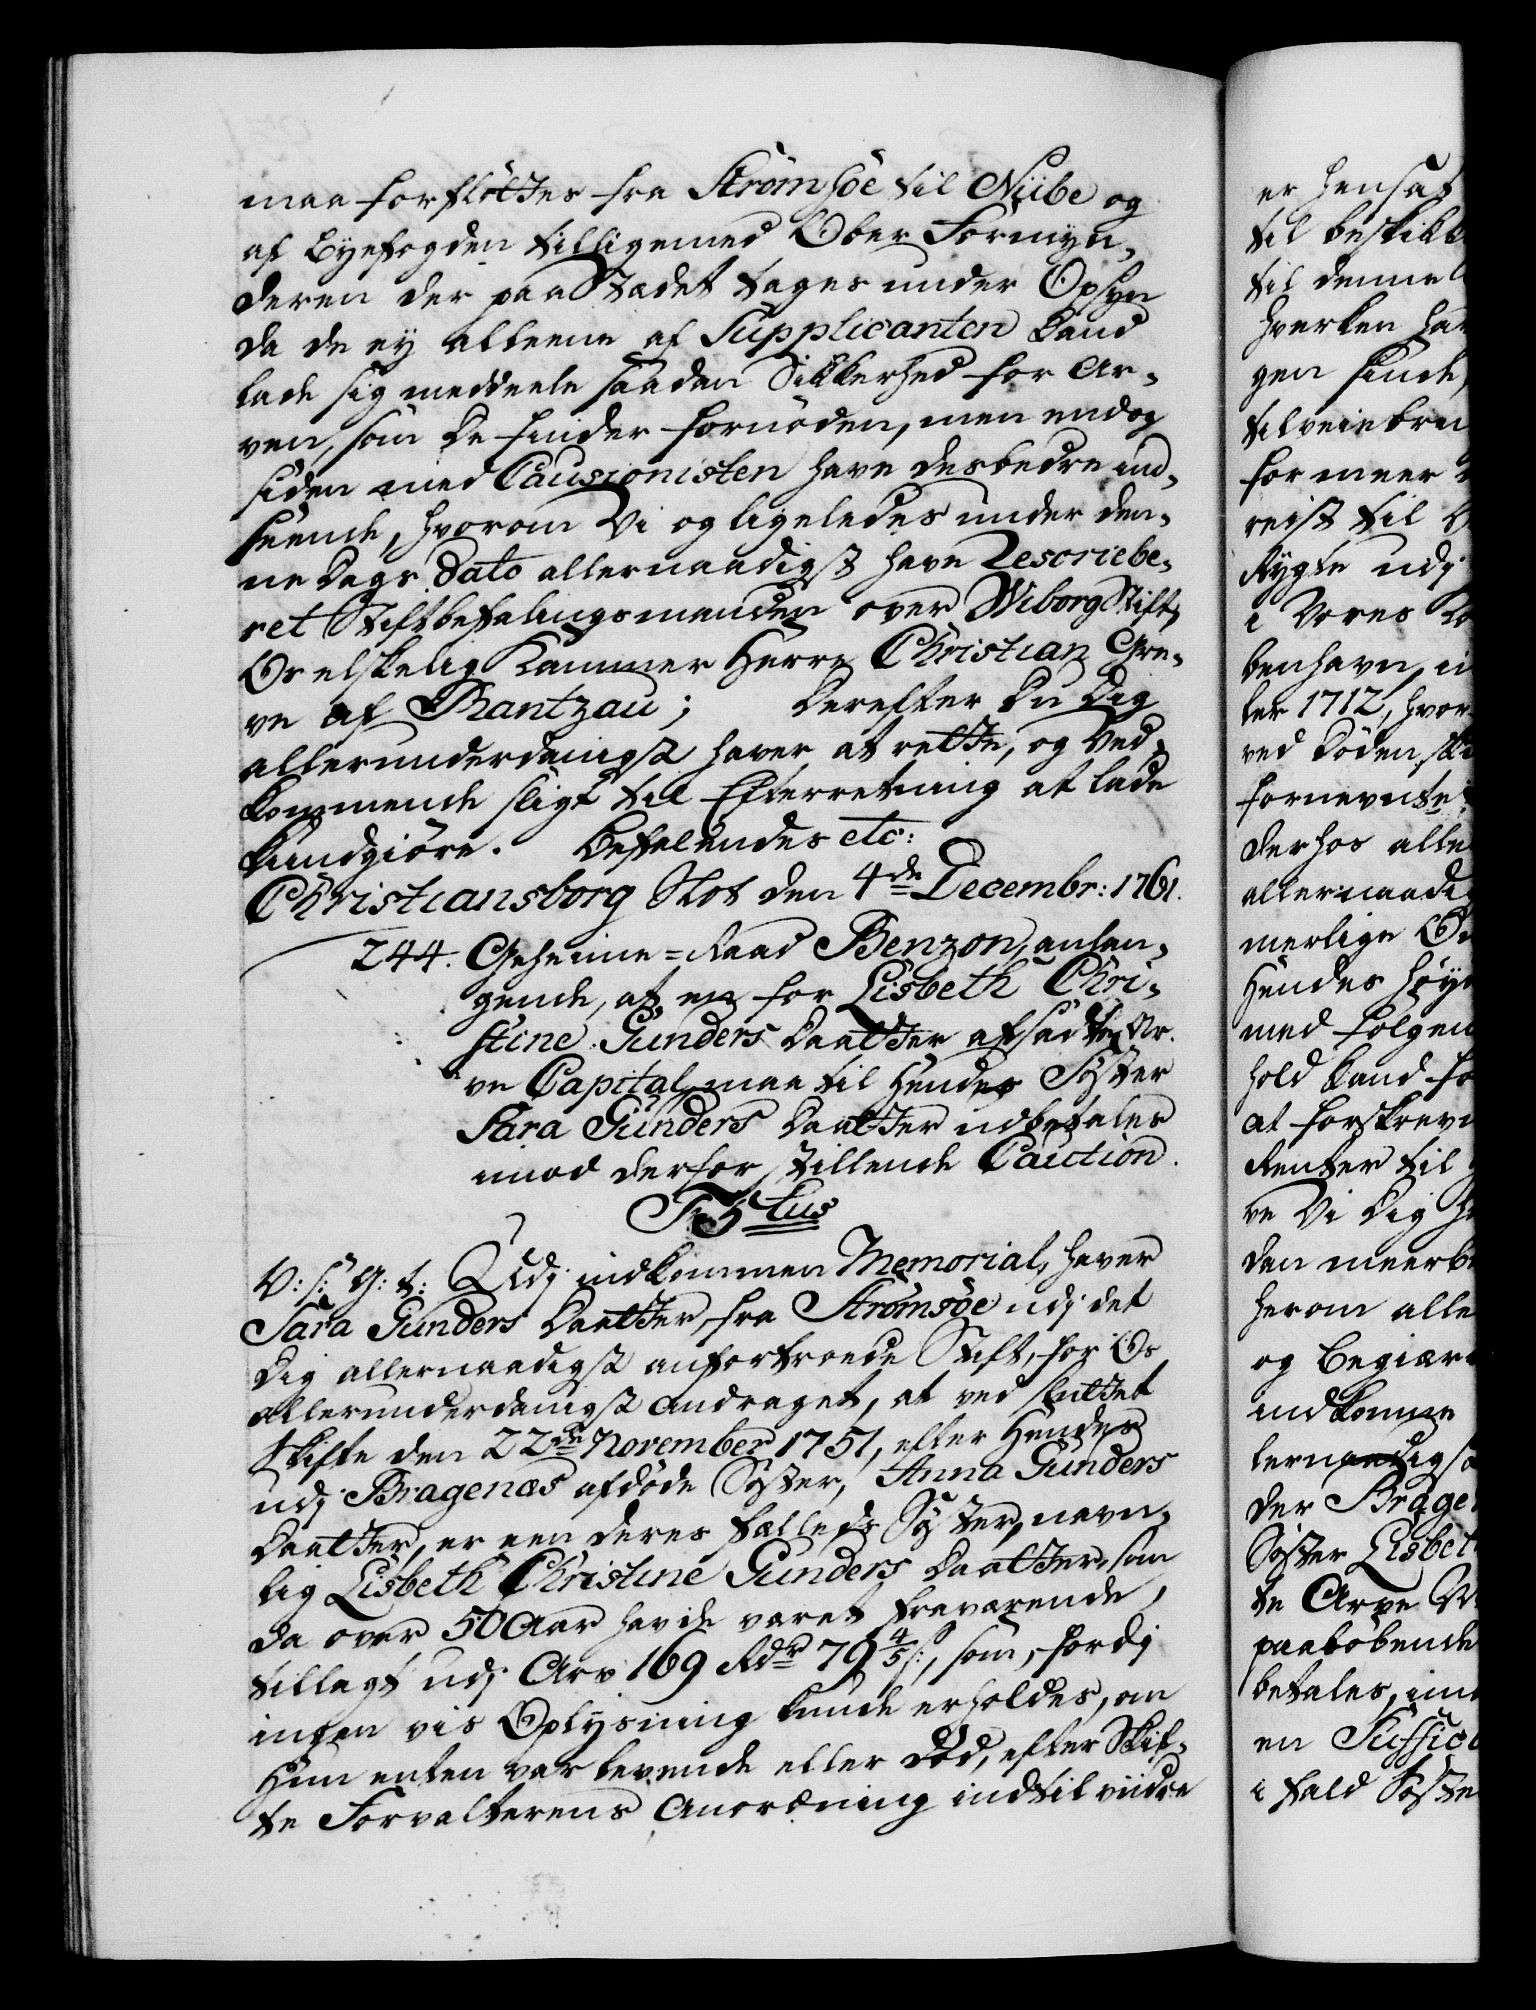 maa forfløttes fra Strømsöe til Niibe og
af Byefogden tilligemed Ober Formyn-
deren der paa Stædet tages under Opsyn
da de ey alleene af Supplicanten kand
lade sig meddeele saadan Sikkerhed for Ar-
ven, som de finder fornöden, men endog
siden med Causionisten have desbedre ind-
seende, hvorom Vi og ligeledes under den-
ne Dags Dato allernaadigst have Rescriebe-
ret Stiftbefalingsmanden over Wiborg Stift,
Os elskelig Kammer Herre Christian Gre-
ve af Rantzau; Derefter Du Dig
allerunderdanigst haver at rette, og Ved-
kommende sligt til Efterretning at lade
kundgiöre. Befalendes etc:
Christiansborg Slot den 4de Decembr: 1761.
244. Geheime=Raad Benzon, anlan-
gende, at en for Lisbeth Chri-
stine Gunders Daatter afsadt Ar-
ve Capital maa til Hendes Söster
Sara Gunders Daatter udbetales
imod derfor stillende Caution.
F. 5 tus
V: S: G: t: Udj indkommen Memorial, haver
Sara Gunders Daatter, fra Strömsöe udj det
Dig allernaadigst anfortroede Stift, for Os
allerunderdanigst andraget, at ved sluttet
Skifte den 22de November 1751, efter Hendes
udj Bragenæs afdöde Söster, Anna Gunders
Daatter, er een deres fælleds Söster, navn-
lig Lisbeth Christine Gunders Daatter, som
da over 50 Aar havde været fraværende,
tillagt udj Arv 169 Rdr 79 4/5 s:, som, fordj
ingen vis Oplysning kunde erholdes, om
Hun enten var levende eller död, efter Skif-
te Forvalterens Anordning indtil viidre
er hensat
til beskikk
til denne
hverken har
gen finde,
tilveiebrin
for meer
reist til
Rygte udj
i Vores
benhavn, i
ler 1712, hvor
ved Döden
fornevnte
derhos alle
allernaadi
merlige
Hendes höy
med folgen
hold kand fo
at forskreve
Renter til
ve Vi Dig h
den meerb
herom alle
og begiære
indkomne
lernaadigst
der Brage
Söster Lisbet
te Arve
paalöbende
betales, imo
en Sufficie
i fald Söste